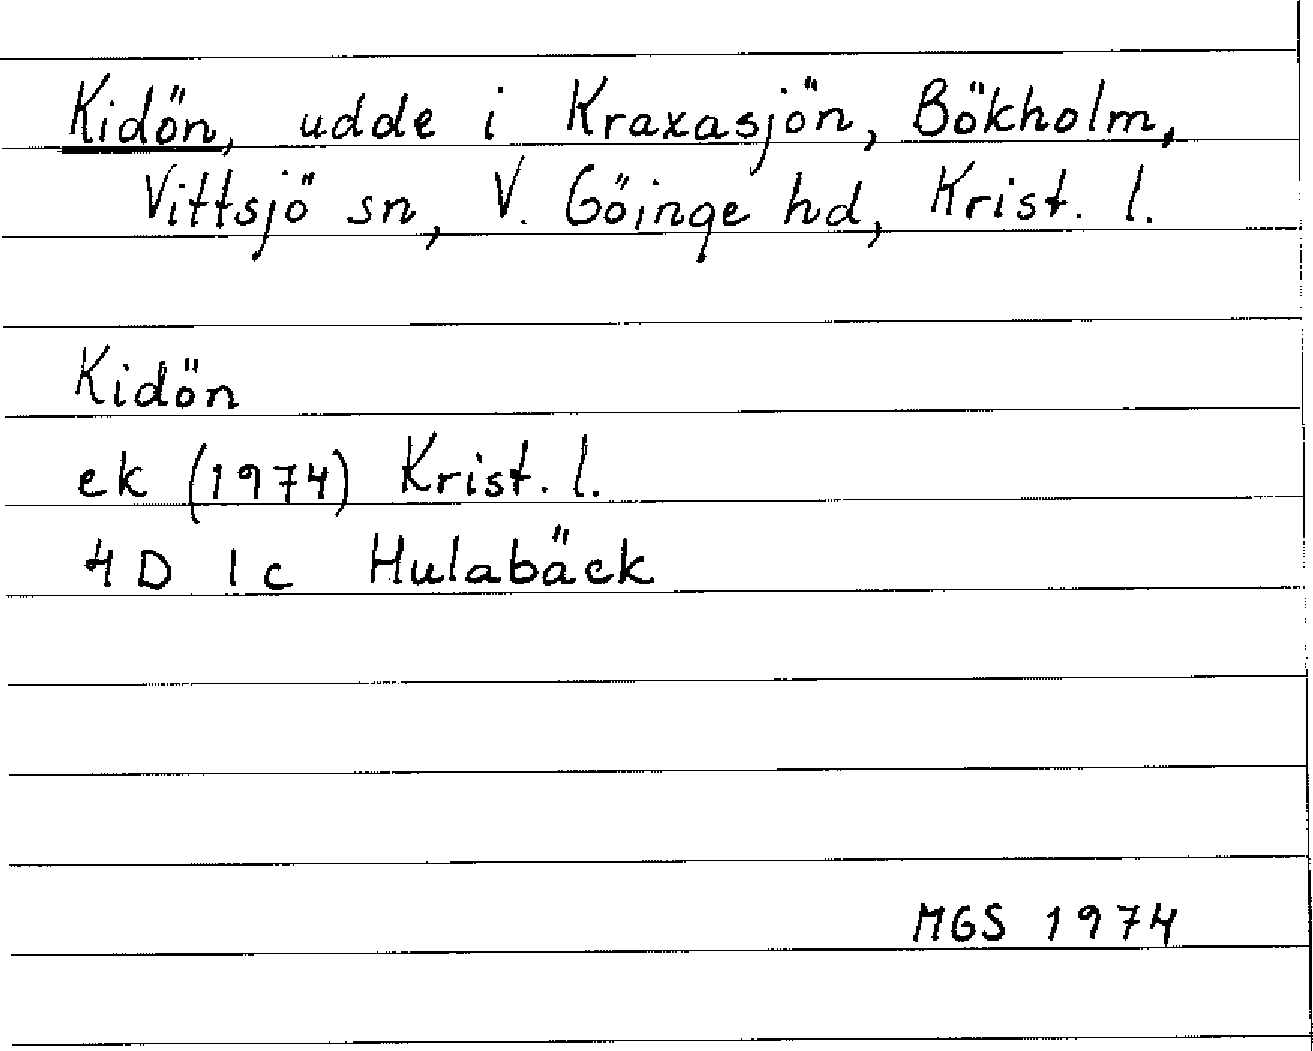 Kidön, udde i Kraxasjön, Bökholm,
Vittsjö sn, V. Göinge hd, Krist. l.
Kidön
ek (1974) Krist. l.
4 D 1 c Hulabäck
MGS 1974